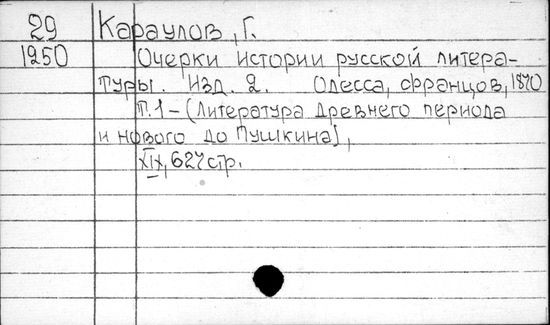 29 Караулов, Г.
1250 Очерки истории русской литера-
туры. Изд. 2. Одесса, Францов, 1870
Т.1 – (Литература древнего периода
и нового до Пушкина],
XIX, 627 стр.